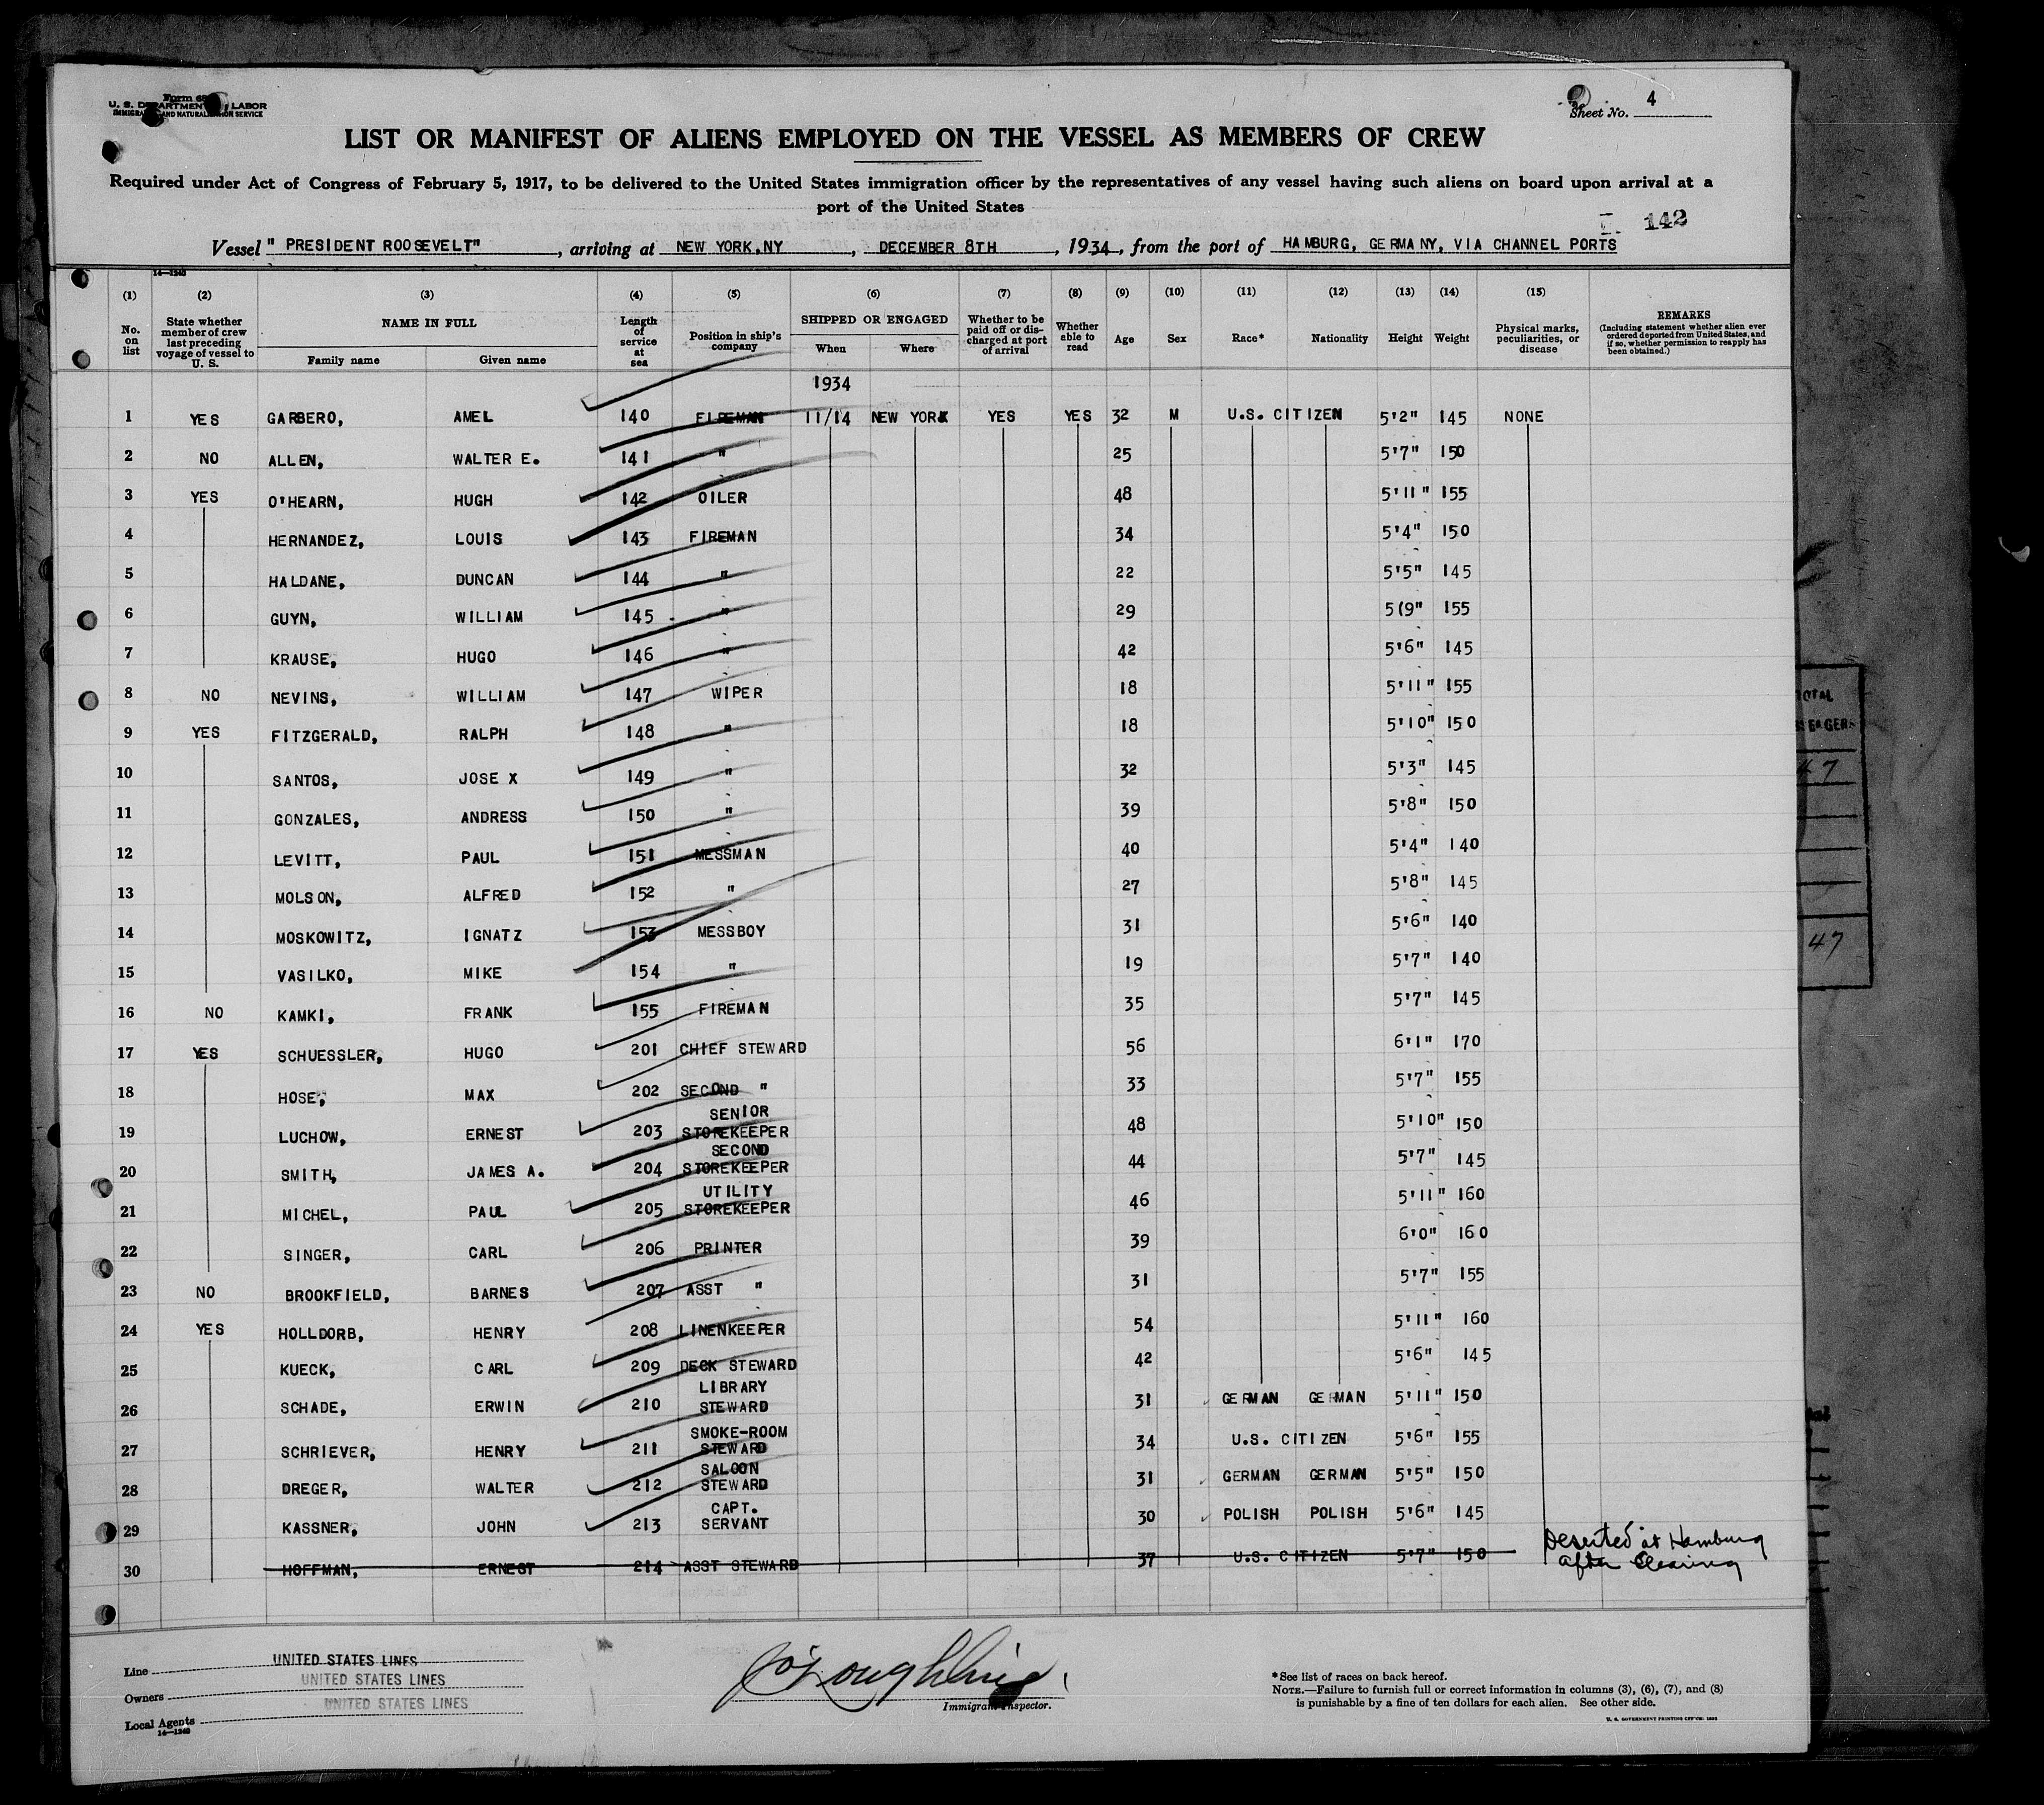 Form 68
U. S. DEPARTMENT LABOR
IMMIGRA AND NATURALIZATION SERVICE
Sheet No. 4
LIST OR MANIFEST OF ALIENS EMPLOYED ON THE VESSEL AS MEMBERS OF CREW
Required under Act of Congress of February 5, 1917, to be delivered to the United States immigration officer by the representatives of any vessel having such aliens on board upon arrival at a
port of the United States
142
Vessel " PRESIDENT ROOSEVELT" , arriving at NEW YORK,NY , DECEMBER 8TH , 1934, from the port of HAMBURG, GERMANY, VIA CHANNEL PORTS
14—1240
(1) (2) (3) (4) (5) (6) (7) (8) (9) (10) (11) (12) (13) (14) (15)
No. on list
State whether member of crew last preceding voyage of vessel to U. S.
NAME IN FULL
Family name Given name
Length of service at sea
Position in ship's company
SHIPPED OR ENGAGED
When Where
Whether to be paid off or discharged at port of arrival
Whether able to read
Age Sex Race* Nationality Height Weight
Physical marks, peculiarities, or disease
REMARKS
(Including statement whether alien ever ordered deported from United States, and if so, whether permission to reapply has been obtained.)
1934
1 YES GARBERO, AMEL 140 FIREMAN 11/14 NEW YORK YES YES 32 M U.S. CITIZEN 5'2" 145 NONE
2 NO ALLEN, WALTER E. 141 " 25 5'7" 150
3 YES O'HEARN, HUGH 142 OILER 48 5'11" 155
4 HERNANDEZ, LOUIS 143 FIREMAN 34 5'4" 150
5 HALDANE, DUNCAN 144 " 22 5'5" 145
6 GUYN, WILLIAM 145 " 29 5(9" 155
7 KRAUSE, HUGO 146 " 42 5'6" 145
8 NO NEVINS, WILLIAM 147 WIPER 18 5'11" 155
9 YES FITZGERALD, RALPH 148 " 18 5'10" 150
10 SANTOS, JOSE X 149 " 32 5'3" 145
11 GONZALES, ANDRESS 150 " 39 5'8" 150
12 LEVITT, PAUL 151 MESSMAN 40 5'4" 140
13 MOLSON, ALFRED 152 " 27 5'8" 145
14 MOSKOWITZ, IGNATZ 153 MESSBOY 31 5'6" 140
15 VASILKO, MIKE 154 " 19 5'7" 140
16 NO KAMKI, FRANK 155 FIREMAN 35 5'7" 145
17 YES SCHUESSLER, HUGO 201 CHIEF STEWARD 56 6'1" 170
18 HOSE, MAX 202 SECOND " 33 5'7" 155
19 LUCHOW, ERNEST 203 SENIOR STOREKEEPER 48 5'10" 150
20 SMITH, JAMES A. 204 SECOND STOREKEEPER 44 5'7" 145
21 MICHEL, PAUL 205 UTILITY STOREKEEPER 46 5'11" 160
22 SINGER, CARL 206 PRINTER 39 6'0" 160
23 NO BROOKFIELD, BARNES 207 ASST " 31 5'7" 155
24 YES HOLLDORB, HENRY 208 LINENKEEPER 54 5'11" 160
25 KUECK, CARL 209 DECK STEWARD 42 5'6" 145
26 SCHADE, ERWIN 210 LIBRARY STEWARD 31 GERMAN GERMAN 5'11" 150
27 SCHRIEVER, HENRY 211 SMOKE-ROOM STEWARD 34 U.S. CITIZEN 5'6" 155
28 DREGER, WALTER 212 SALOON STEWARD 31 GERMAN GERMAN 5'5" 150
29 KASSNER, JOHN 213 CAPT. SERVANT 30 POLISH POLISH 5'6" 145
30 HOFFMAN, ERNEST 214 ASST STEWARD 37 U.S. CITIZEN 5'7" 150 Deserted at Hamburg
after Clearing
Line UNITED STATES LINES
Owners UNITED STATES LINES
Local Agents UNITED STATES LINES
14—1240
Immigrant Inspector.
*See list of races on back hereof.
NOTE.—Failure to furnish full or correct information in columns (3), (6), (7), and (8)
is punishable by a fine of ten dollars for each alien. See other side.
U. S. GOVERNMENT PRINTING OFFICE:
TOTAL
47
47